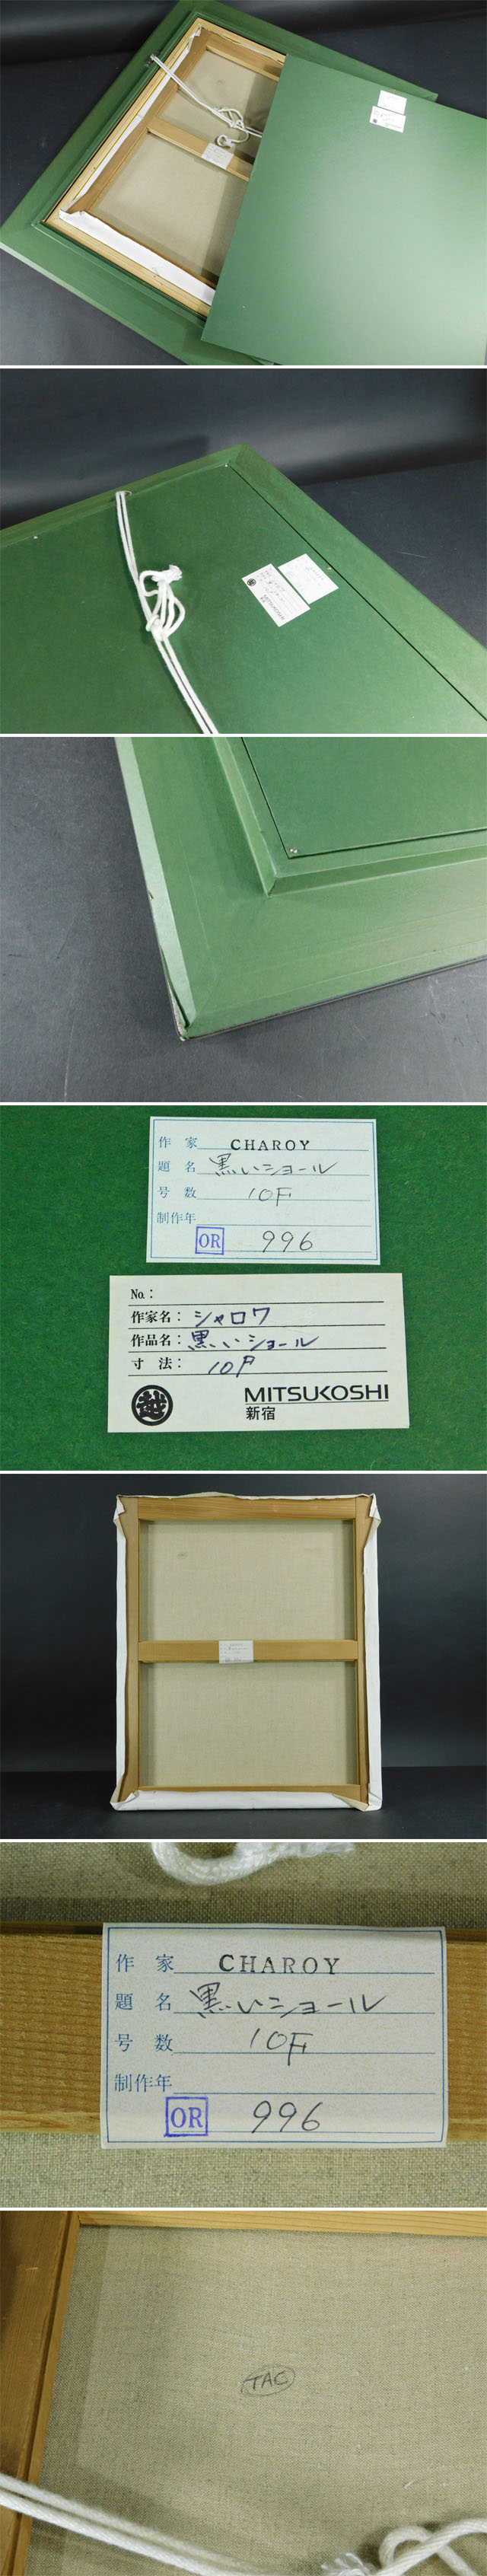 作家 CHAROY
題名 黒いショール
号数 10F
制作年
OR 996
No.:
作家名: シャロワ
作品名: 黒いショール
寸法: 10P
越 MITSUKOSHI
新宿
作家 CHAROY
題名 黒いショール
号数 10F
制作年
OR 996
TAC